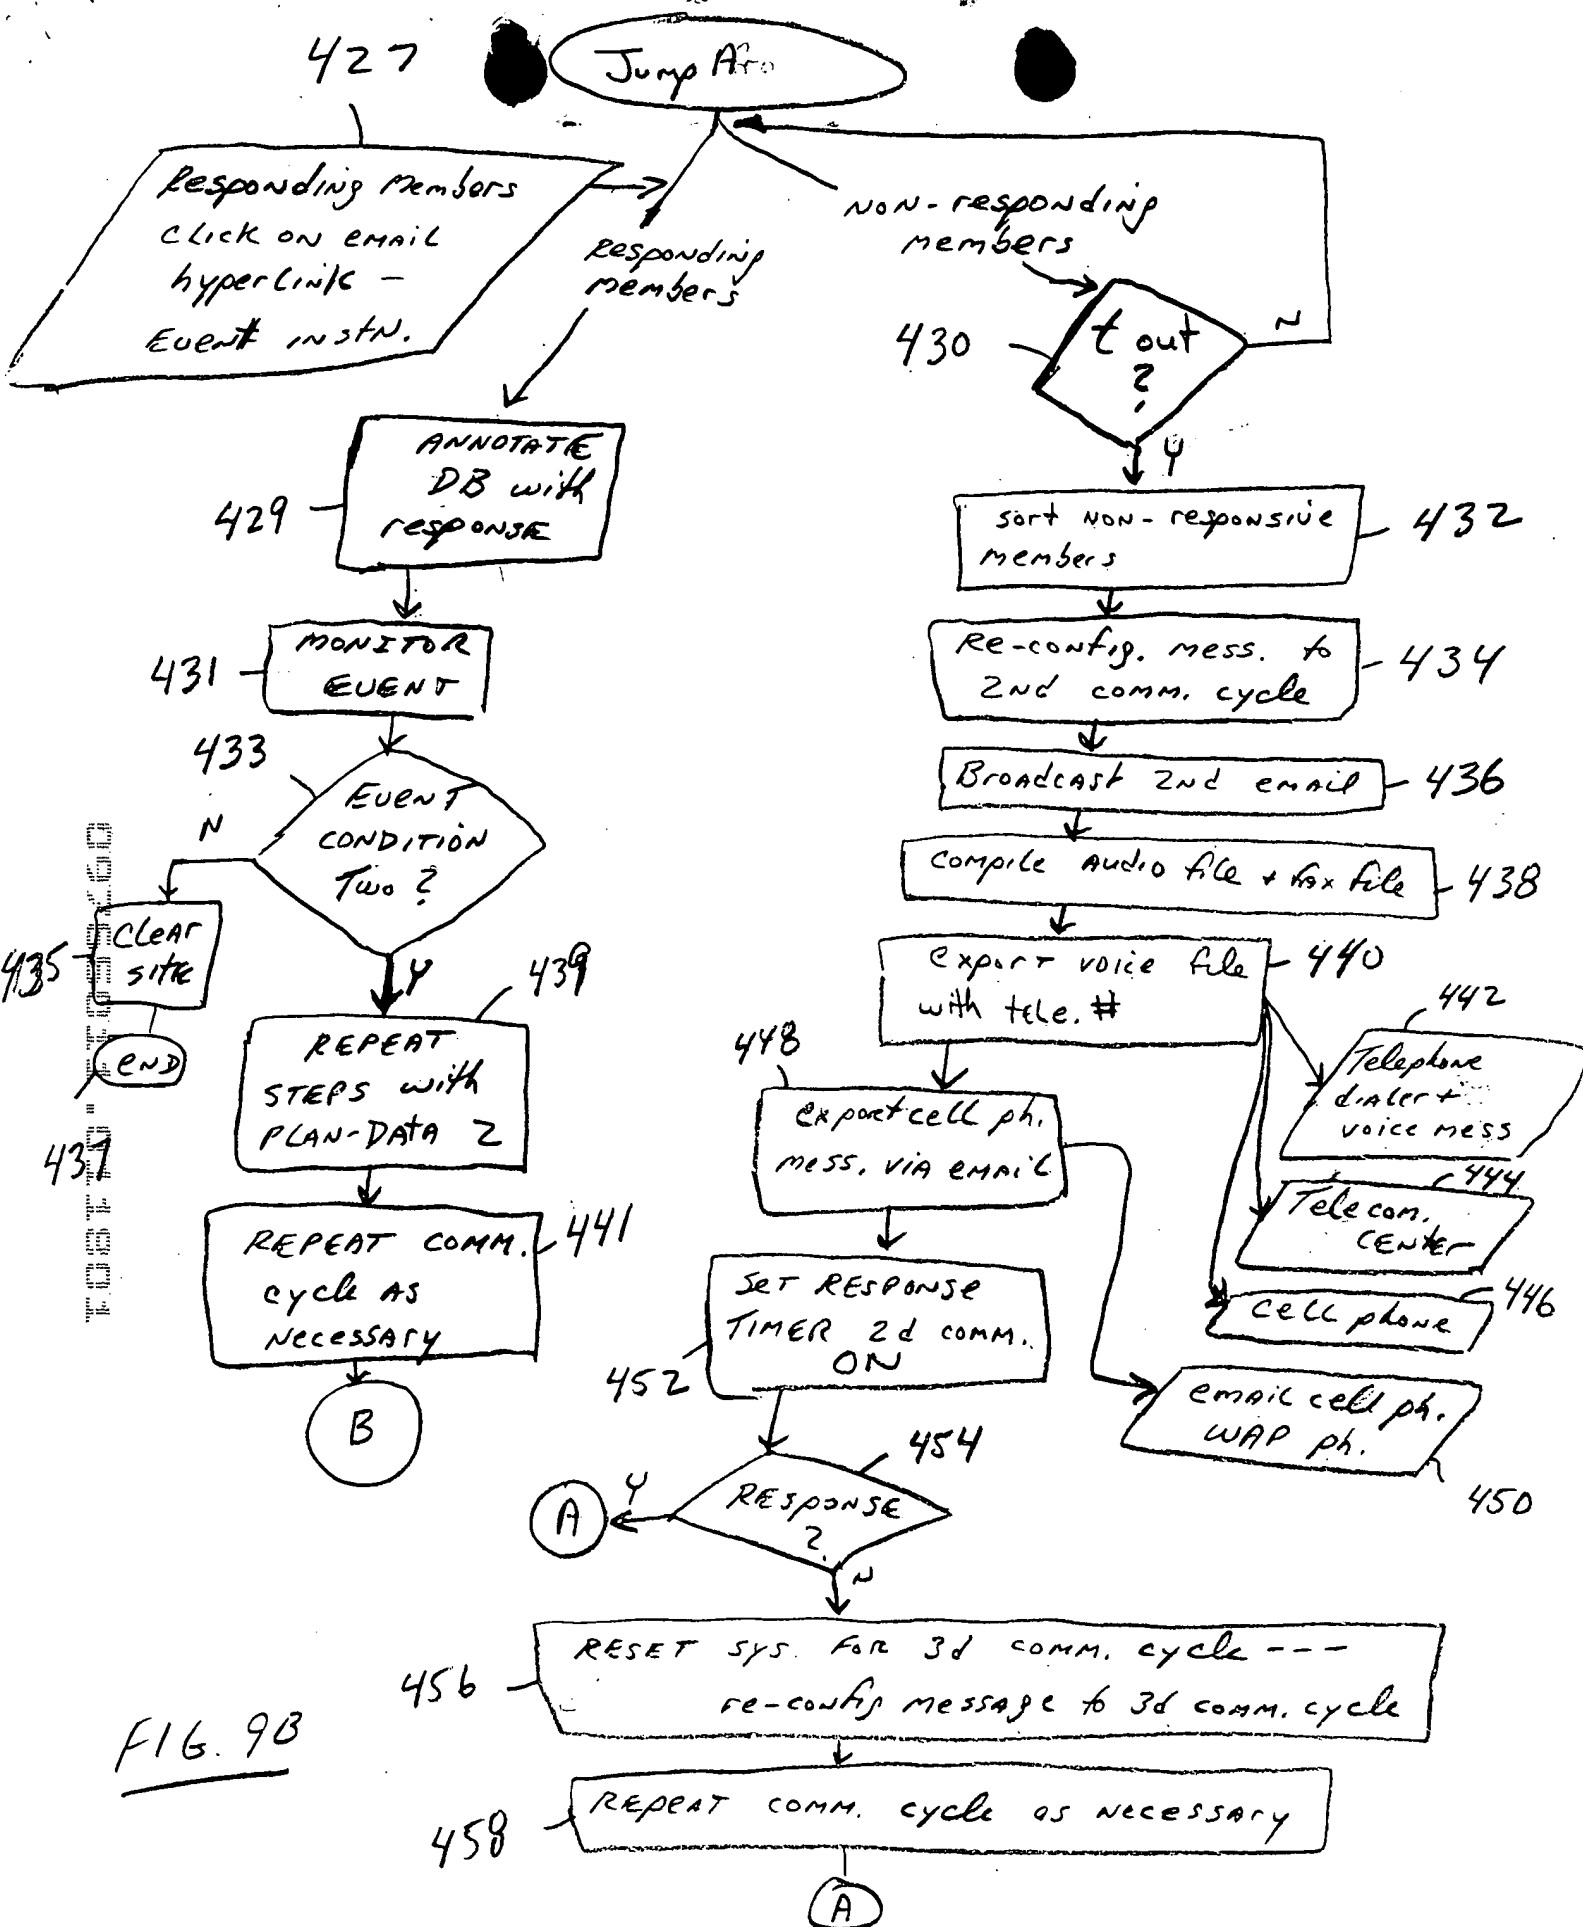 427
Jump
Responding Members
click on email
hyperlink -
Event instn.
Responding
members
NON-responding
members
430
t out
?
N
Y
ANNOTATE
DB with
response
429
sort NON-responsive
members
432
MONITOR
EVENT
431
Re-config. mess. to
2nd comm. cycle
434
433
EVENT
CONDITION
Two ?
N
Y
Broadcast 2nd email
436
compile Audio file + fax file
438
clear
site
435
END
437
439
REPEAT
STEPS with
PLAN-DATA 2
export voice file
with tele. #
440
442
Telephone
dialer +
voice mess
448
export cell ph.
mess. via email
444
Telecom.
CENTER
REPEAT COMM.
cycle AS
Necessary
441
446
cell phone
SET RESPONSE
TIMER 2d comm.
ON
452
email cell ph.
WAP ph.
450
B
454
RESPONSE
?
Y
A
N
RESET sys. FOR 3d comm. cycle ---
re-config message to 3d comm. cycle
456
FIG. 9B
REPEAT comm. cycle as necessary
458
A